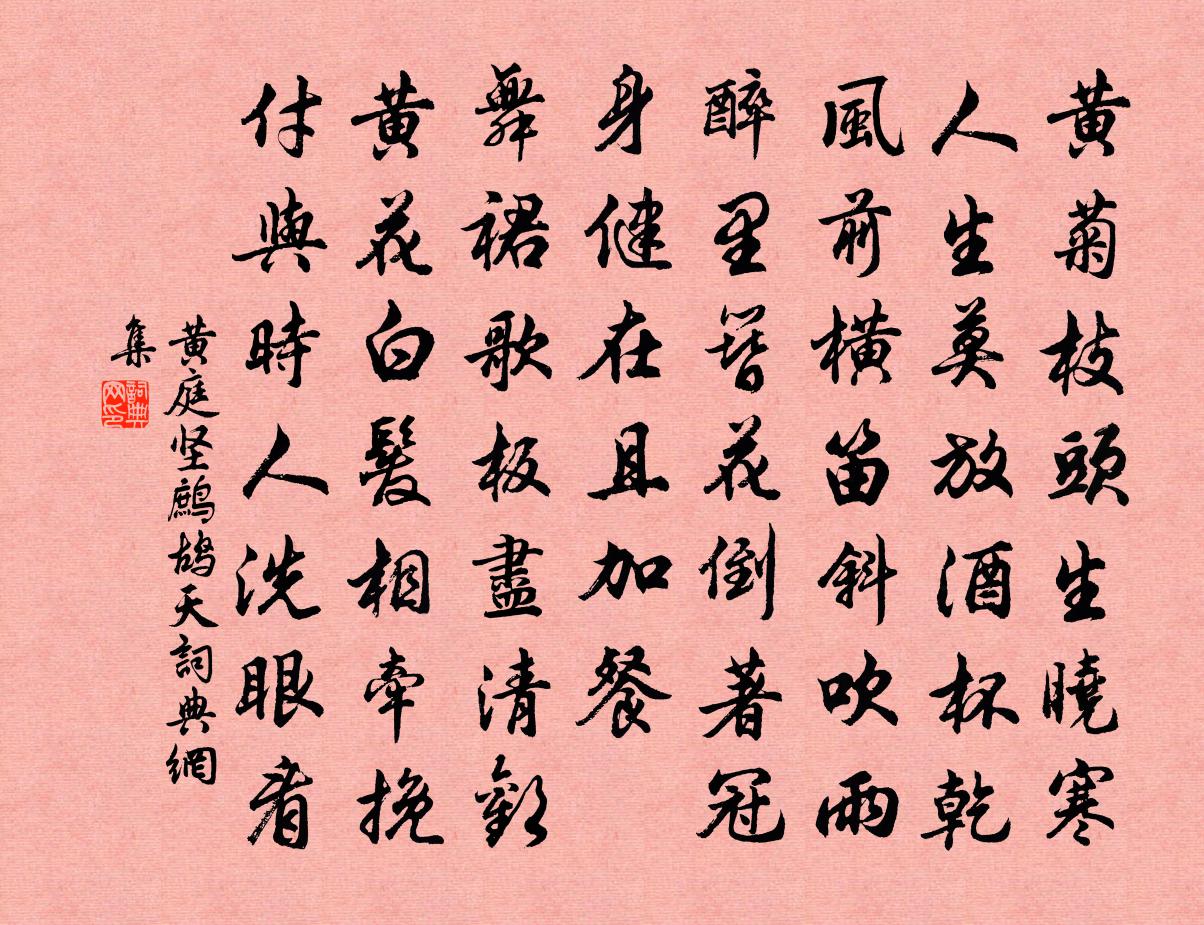 黄菊枝頭生曉寒
人生莫放酒杯乾
風前橫笛斜吹雨
醉里簪花倒著冠
身健在且加餐
舞裙歌板盡清歡
黄花白髮相牽挽
付與時人洗眼看
黄庭坚鷓鴣天詞典網
集
詞典网印